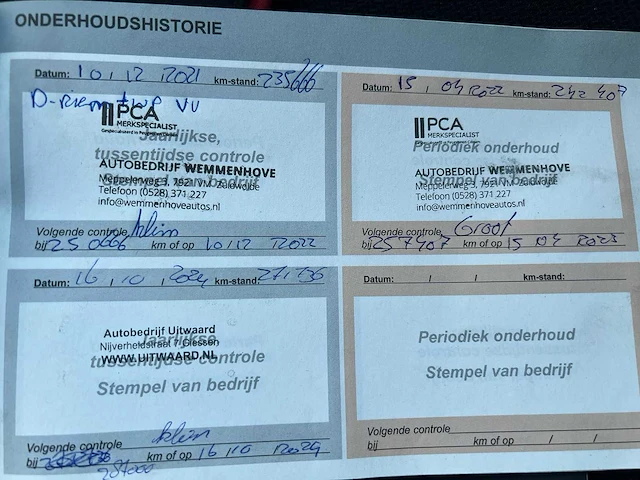 ONDERHOUDSHISTORIE
Datum: 10, 12 2021 km-stand: 235666
D-riem + WP VV
PCA
MERKSPECIALIST
Jaarlijkse,
tussentijdse controle
AUTOBEDRIJF WEMMENHOVE
Stempel van bedrijf
Meppelerweg 3, 7921 VM Zuidwolde
Telefoon (0528) 371 227
info@wemmenhoveautos.nl
Volgende controle klein
bij 250666 km of op 10/12 2022
Datum: 15, 04 2022 km-stand: 242 407
PCA
MERKSPECIALIST
Periodiek onderhoud
AUTOBEDRIJF WEMMENHOVE
Stempel van bedrijf
Meppelerweg 3, 7921 VM Zuidwolde
Telefoon (0528) 371 227
info@wemmenhoveautos.nl
Volgende controle Groot
bij 257407 km of op 15 04 2023
Datum: 16, 10, 2024 km-stand:
Autobedrijf Uitwaard
Jaarlijkse,
Nijverheidstraat 7 Giessen
WWW.UITWAARD.NL
tussentijdse controle
Stempel van bedrijf
Volgende controle klein
bij km of op 16/10
287000
Datum: / / km-stand:
Periodiek onderhoud
Stempel van bedrijf
Volgende controle
bij km of op / /